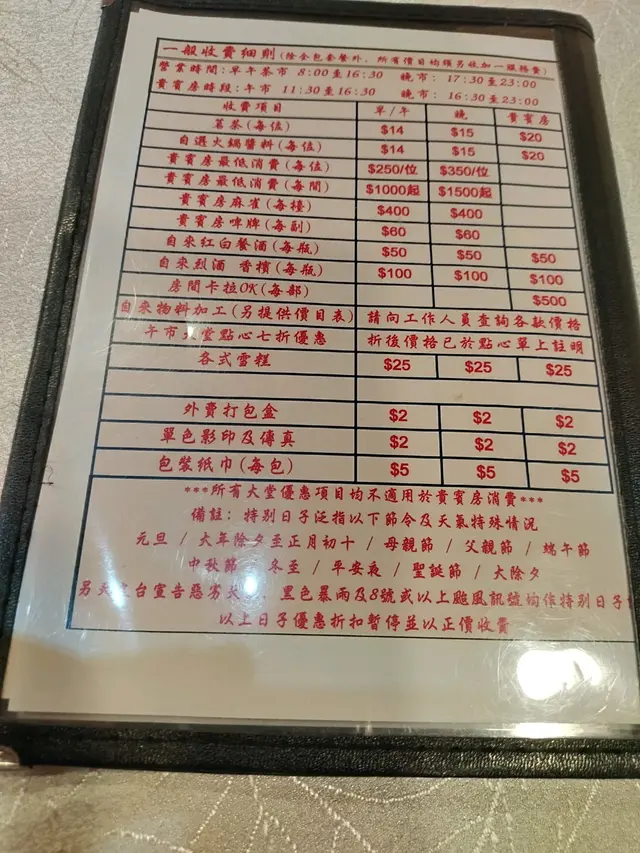 一般收費細則(除全包套餐外，所有價目均須另收加一服務費)
營業時間:早午茶市 8:00至16:30 晚市: 17:30至23:00
貴賓房時段:午市 11:30至16:30 晚市: 16:30至23:00
收費項目 早/午 晚 貴賓房
茗茶(每位) $14 $15 $20
自選火鍋醬料(每位) $14 $15 $20
貴賓房最低消費(每位) $250/位 $350/位
貴賓房最低消費(每間) $1000起 $1500起
貴賓房麻雀(每檯) $400 $400
貴賓房啤牌(每副) $60 $60
自來紅白餐酒(每瓶) $50 $50 $50
自來烈酒 香檳(每瓶) $100 $100 $100
房間卡拉OK(每部) $500
自來物料加工(另提供價目表) 請向工作人員查詢各款價格
午市大堂點心七折優惠 折後價格已於點心單上註明
各式雪糕 $25 $25 $25
外賣打包盒 $2 $2 $2
單色影印及傳真 $2 $2 $2
包裝紙巾(每包) $5 $5 $5
***所有大堂優惠項目均不適用於貴賓房消費***
備註: 特別日子泛指以下節令及天氣特殊情況
元旦 / 大年除夕至正月初十 / 母親節 / 父親節 / 端午節
中秋節 冬至 / 平安夜 / 聖誕節 / 大除夕
另天文台宣告惡劣天 、黑色暴雨及8號或以上颱風訊號均作特別日子
以上日子優惠折扣暫停並以正價收費